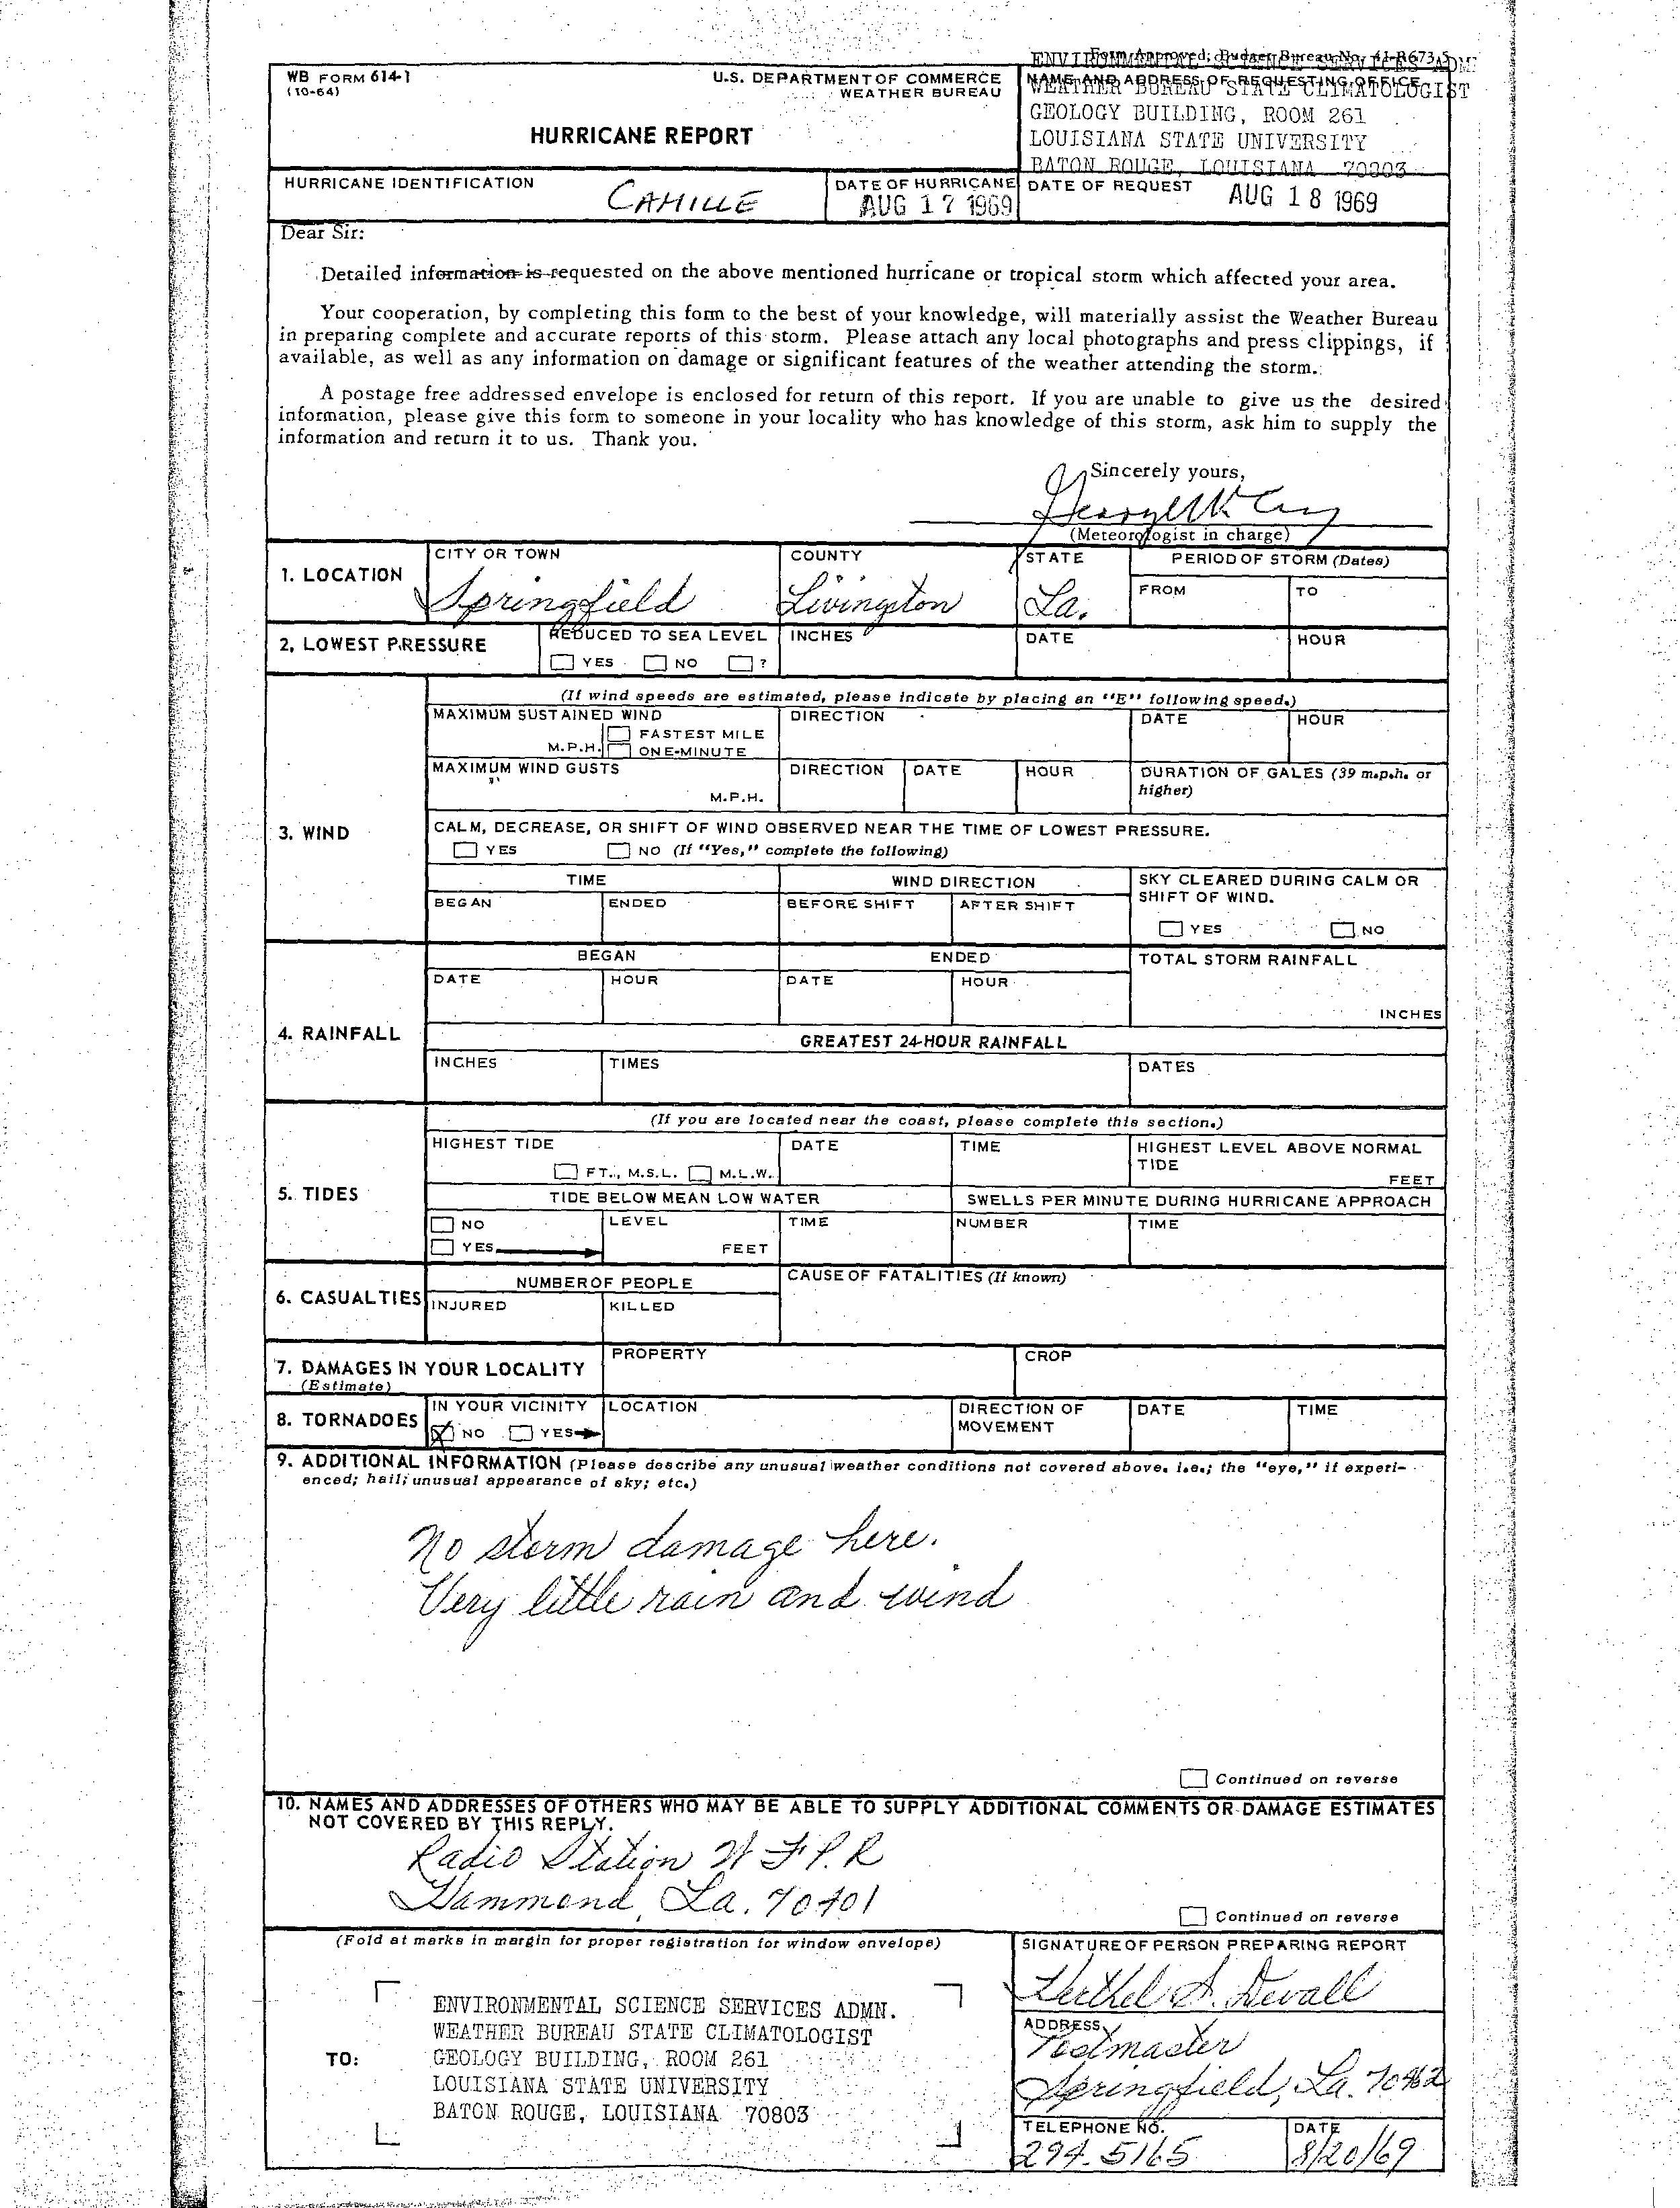 Form Approved; Budget Bureau No. 41-R673.5
WB FORM 614-1
(10-64)
U.S. DEPARTMENT OF COMMERCE
WEATHER BUREAU
HURRICANE REPORT
NAME AND ADDRESS OF REQUESTING OFFICE
WEATHER BUREAU STATE CLIMATOLOGIST
GEOLOGY BUILDING, ROOM 261
LOUISIANA STATE UNIVERSITY
BATON ROUGE, LOUISIANA 70803
HURRICANE IDENTIFICATION
CAMILLE
DATE OF HURRICANE
AUG 17 1969
DATE OF REQUEST
AUG 18 1969
Dear Sir:
Detailed information is requested on the above mentioned hurricane or tropical storm which affected your area.
Your cooperation, by completing this form to the best of your knowledge, will materially assist the Weather Bureau
in preparing complete and accurate reports of this storm. Please attach any local photographs and press clippings, if
available, as well as any information on damage or significant features of the weather attending the storm.
A postage free addressed envelope is enclosed for return of this report. If you are unable to give us the desired
information, please give this form to someone in your locality who has knowledge of this storm, ask him to supply the
information and return it to us. Thank you.
Sincerely yours,
(Meteorologist in charge)
1. LOCATION
CITY OR TOWN
Springfield
COUNTY
Livingston
STATE
La.
PERIOD OF STORM (Dates)
FROM
TO
2. LOWEST PRESSURE
REDUCED TO SEA LEVEL
YES NO ?
INCHES
DATE
HOUR
3. WIND
(If wind speeds are estimated, please indicate by placing an "E" following speed.)
MAXIMUM SUSTAINED WIND
M.P.H.
FASTEST MILE
ONE-MINUTE
DIRECTION
DATE
HOUR
MAXIMUM WIND GUSTS
M.P.H.
DIRECTION
DATE
HOUR
DURATION OF GALES (39 m.p.h. or
higher)
CALM, DECREASE, OR SHIFT OF WIND OBSERVED NEAR THE TIME OF LOWEST PRESSURE.
YES NO (If "Yes," complete the following)
TIME
WIND DIRECTION
SKY CLEARED DURING CALM OR
SHIFT OF WIND.
BEGAN
ENDED
BEFORE SHIFT
AFTER SHIFT
YES NO
4. RAINFALL
BEGAN
ENDED
TOTAL STORM RAINFALL
DATE
HOUR
DATE
HOUR
INCHES
GREATEST 24-HOUR RAINFALL
INCHES
TIMES
DATES
5. TIDES
(If you are located near the coast, please complete this section.)
HIGHEST TIDE
FT., M.S.L. M.L.W.
DATE
TIME
HIGHEST LEVEL ABOVE NORMAL
TIDE
FEET
TIDE BELOW MEAN LOW WATER
SWELLS PER MINUTE DURING HURRICANE APPROACH
NO
YES
LEVEL
FEET
TIME
NUMBER
TIME
6. CASUALTIES
NUMBER OF PEOPLE
INJURED
KILLED
CAUSE OF FATALITIES (If known)
7. DAMAGES IN YOUR LOCALITY
(Estimate)
PROPERTY
CROP
8. TORNADOES
IN YOUR VICINITY
NO YES
LOCATION
DIRECTION OF
MOVEMENT
DATE
TIME
9. ADDITIONAL INFORMATION (Please describe any unusual weather conditions not covered above. i.e.; the "eye," if experi-
enced; hail; unusual appearance of sky; etc.)
No storm damage here.
Very little rain and wind
Continued on reverse
10. NAMES AND ADDRESSES OF OTHERS WHO MAY BE ABLE TO SUPPLY ADDITIONAL COMMENTS OR DAMAGE ESTIMATES
NOT COVERED BY THIS REPLY.
Radio Station W F P. R
Hammond, La. 70401
Continued on reverse
(Fold at marks in margin for proper registration for window envelope)
TO:
ENVIRONMENTAL SCIENCE SERVICES ADMN.
WEATHER BUREAU STATE CLIMATOLOGIST
GEOLOGY BUILDING, ROOM 261
LOUISIANA STATE UNIVERSITY
BATON ROUGE, LOUISIANA 70803
SIGNATURE OF PERSON PREPARING REPORT
A. Devall
ADDRESS
Postmaster
Springfield, La. 70462
TELEPHONE NO.
294-5165
DATE
8/20/69